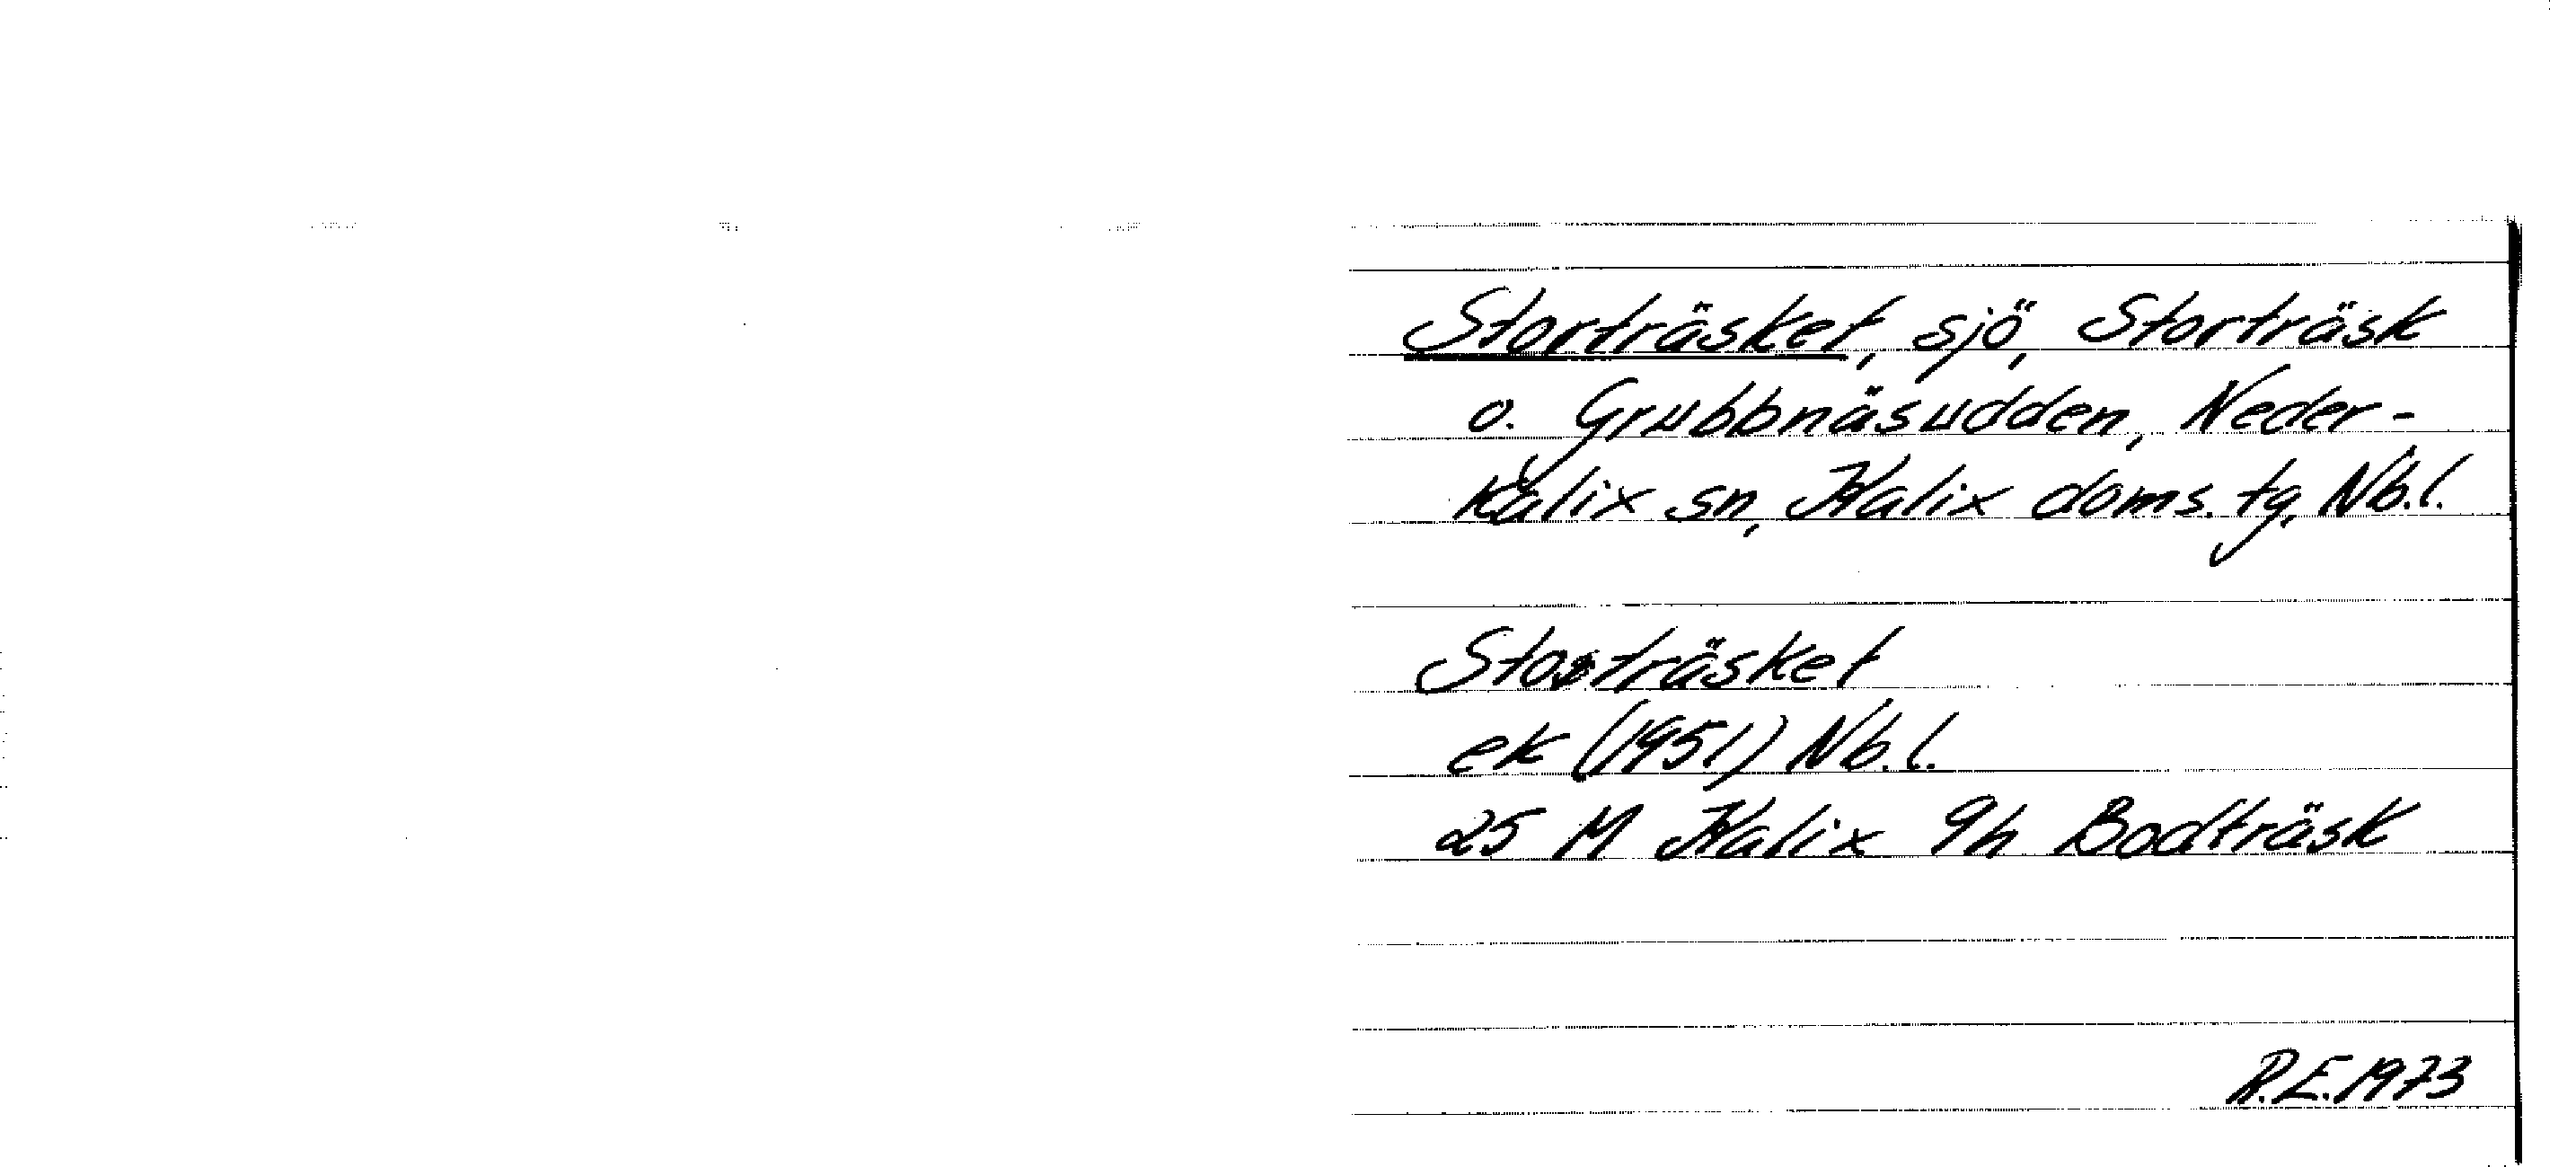 Storträsket, sjö, Storträsk
o. Grubbnäsudden, Neder-
kalix sn, Kalix doms. tg, Nb.l.
Storträsket
ek (1951) Nb.l.
25 M Kalix 9h Bodträsk
R.E.1973